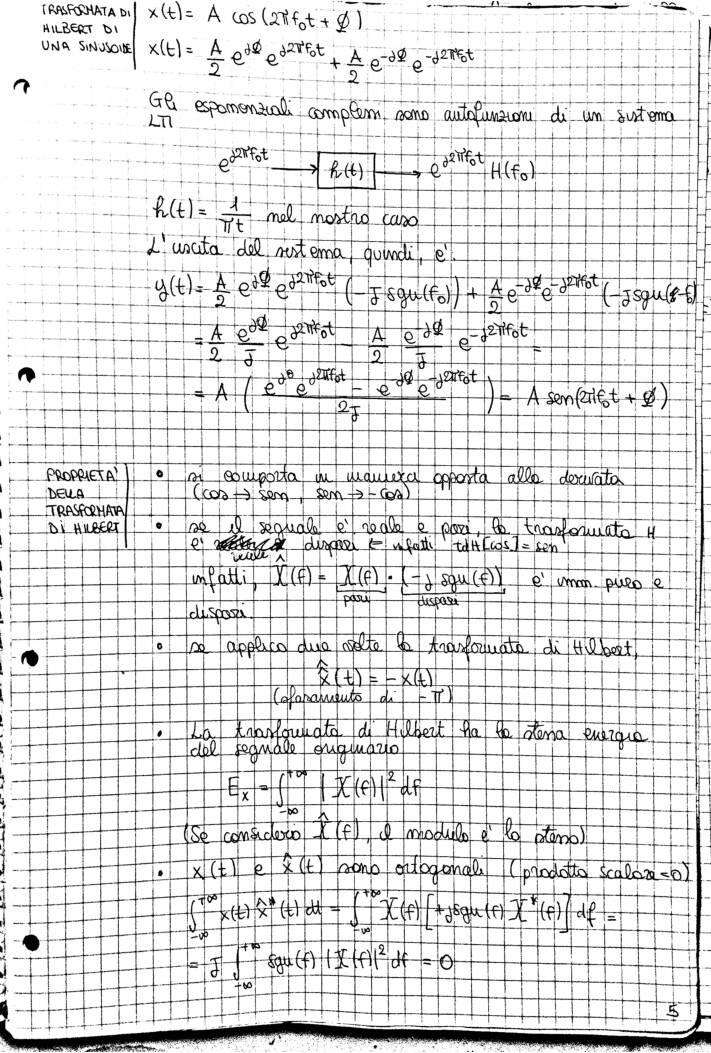 TRASFORMATA DI
HILBERT DI
UNA SINUSOIDE
x(t) = A cos(2πf₀t + ∅)
x(t) = A/2 e^{j∅} e^{j2πf₀t} + A/2 e^{-j∅} e^{-j2πf₀t}
Gli esponenziali complessi sono autofunzioni di un sistema
LTI
e^{j2πf₀t} → h(t) → e^{j2πf₀t} H(f₀)
h(t) = 1/πt nel nostro caso
L'uscita del sistema, quindi, e'.
y(t) = A/2 e^{j∅} e^{j2πf₀t} (-J sgn(f₀)) + A/2 e^{-j∅} e^{-j2πf₀t} (-J sgn(-f₀)) =
= A/2 e^{j∅}/J e^{j2πf₀t} - A/2 e^{-j∅}/J e^{-j2πf₀t} =
= A ( (e^{jθ} e^{j2πf₀t} - e^{-j∅} e^{-j2πf₀t}) / 2J ) = A sen(2πf₀t + ∅)
PROPRIETA'
DELLA
TRASFORMATA
DI HILBERT
• si comporta in maniera opposta alla derivata
(cos → sen, sen → -cos)
• se il segnale e' reale e pari, la trasformata H
e' reale dispari ← infatti TdH[cos] = sen
infatti, X̂(f) = X(f) · (-j sgn(f)) e' imm. puro e
pari dispari
dispari.
• se applico due volte la trasformata di Hilbert,
x̂̂(t) = -x(t)
(sfasamento di -π)
• La trasformata di Hilbert ha la stessa energia
del segnale originario
E_x = ∫_{-∞}^{+∞} |X(f)|² df
(Se considero X̂(f), il modulo e' lo stesso)
• x(t) e x̂(t) sono ortogonali (prodotto scalare = 0)
∫_{-∞}^{+∞} x(t) x̂*(t) dt = ∫_{-∞}^{+∞} X(f) [+j sgn(f) X*(f)] df =
= J ∫_{-∞}^{+∞} sgn(f) |X(f)|² df = 0
5